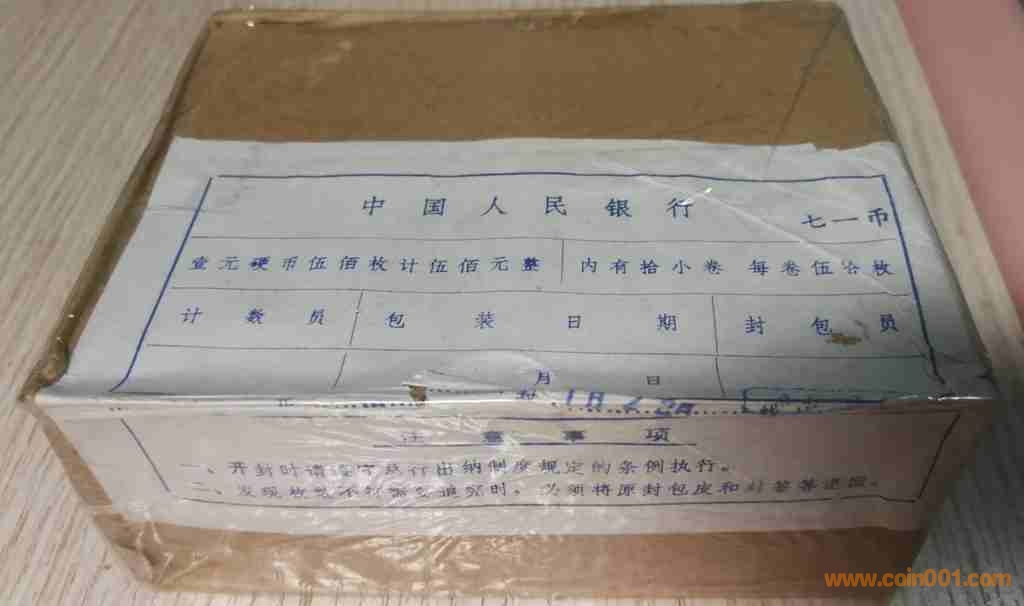 中国人民银行 七一币
壹元硬币伍佰枚计伍佰元整 内有拾小卷 每卷伍拾枚
计数员 包装日期 封包员
月 日
注意事项
一、开封时请遵守总行出纳制度规定的条例执行。
二、发现 不 追究时，必须将原封包皮和封签等退回。
www.coin001.com